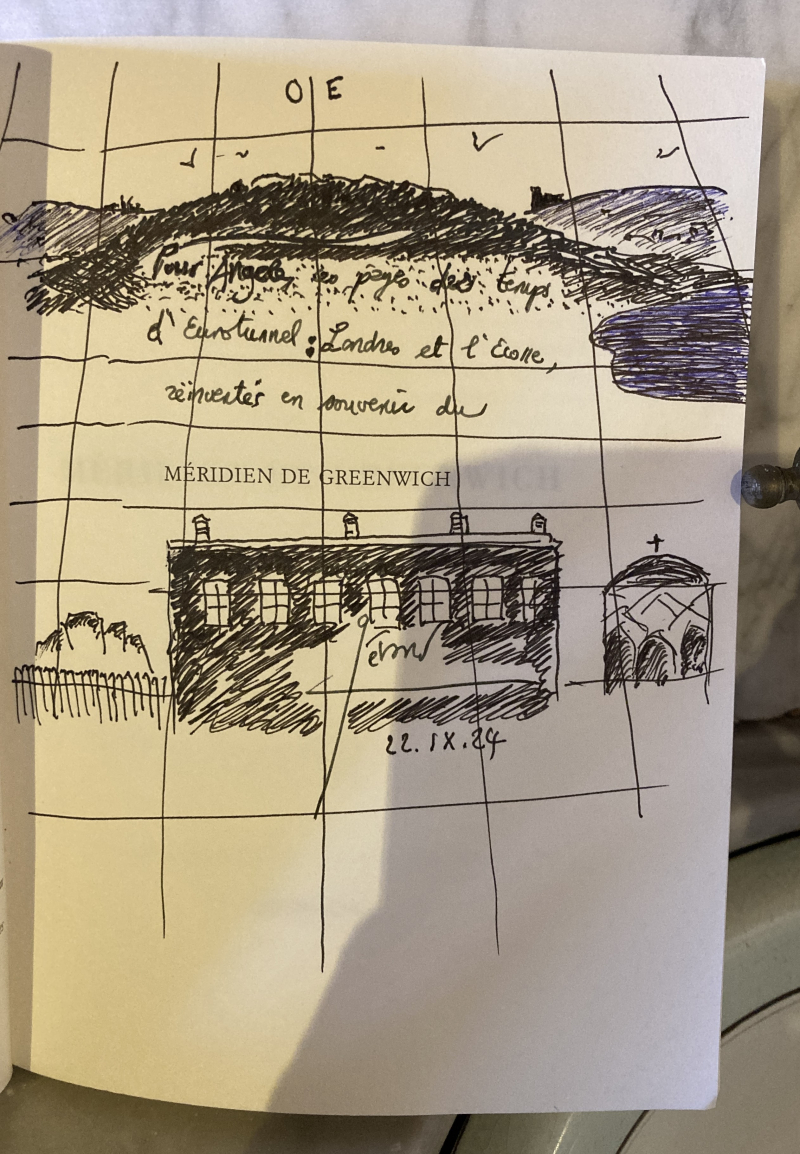 O E
Pour Angela, ces pages des temps
d'Eurotunnel : Londres et l'Ecosse,
réinventés en souvenir du
MÉRIDIEN DE GREENWICH
22.IX.24